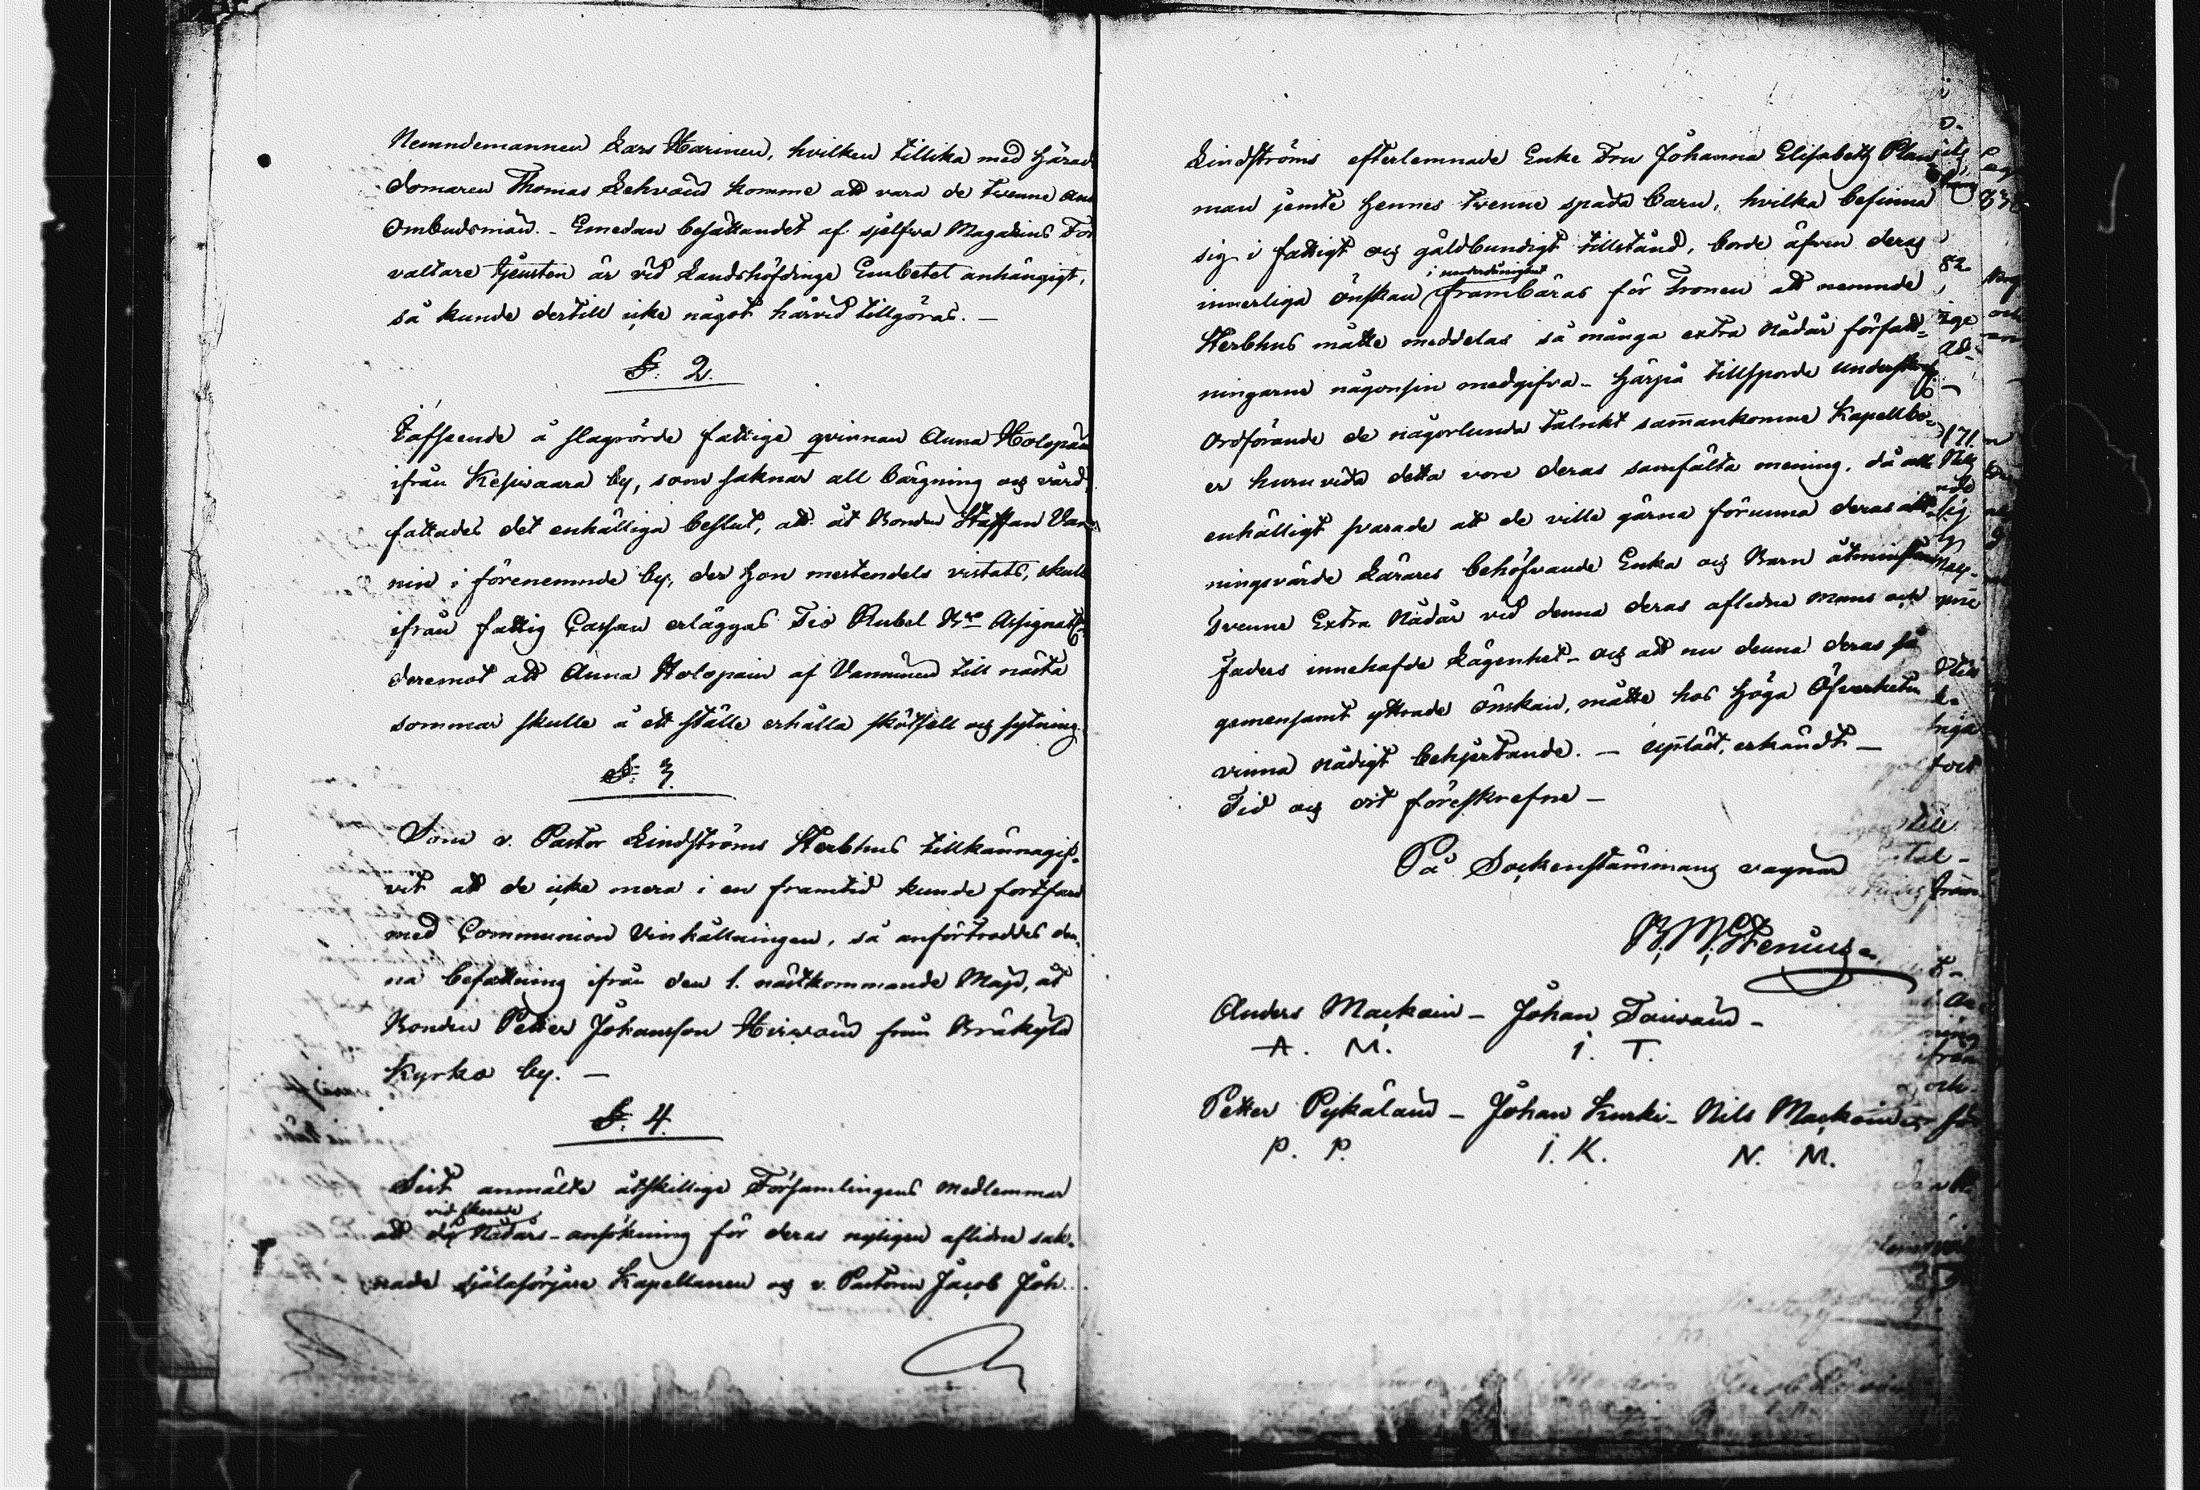 Nemndemannen Lars Harinen, hvilken tillika med Härads
domaren Thomas Lehvoin komme att vara de tvenne an
Ombudsmän. - Emedan besättandet af sjelfva Magazins För
valtare tjensten är vid Landshöfdinge Embetet anhängigt,
så kunde dertill icke något härvid tillgöras. -
§. 2.
I afseende å slagrörde fattige qvinnan Anna Holopain
ifrån Kesivaara by, som saknar all bärgning och vård,
fattades det enhälliga beslut, att åt Bonden Staffan Van
nin i förenemnde by, der hon mestendels vistats, skulle
ifrån fattig Cassan erläggas Tio Rubel Bco Assignatt.
deremot att Anna Holopain af Vanninen till nästa
sommar skulle å ett ställe erhålla skötsell och sytning.
§. 3.
Som v. Pastor Lindströms Sterbhus tillkännagif-
vit att de icke mera i en framtid kunde fortfara
med Communion Vinhållningen, så anförtroddes den-
na befattning ifrån den 1. nästkommande Maji, åt
Bonden Petter Johansson Hirvoin från Bräkylä
Kyrko by. -
§. 4.
Sist anmälte åtskillige Församlingens medlemmar
vid skeende
att dy Nådårs-ansökning för deras nyligen aflidne sak-
nade själasörjare Kapellanen och v. Pastorn Jacob Joh.
Lindströms efterlemnade Enke Fru Johanna Elisabeth Plan
man jemte hennes tvenne späda barn, hvilka befinna
sig i fattigt och gäldbundigt tillstånd, borde äfven deras
i underdånighet
innerliga önskan frambäras för Tronen att nemnde
Sterbhus måtte meddelas så många extra Nådår författ-
ningarne någonsin medgifva - Härpå tillsporde underskref
Ordförande de någorlunda talrikt sammankomne Kapellbo-
er huruvida detta vore deras samfälta mening, då alle
enhälligt svarade att de ville gärna förunna deras
ningsvärde Lärares behöfvande Enka och Barn åtminstone
Tvenne Extra Nådår vid denna deras aflidne mans och
Faders innehafde Lägenhet - och att nu denna deras så
gemensamt yttrade önskan, måtte hos Höga Öfverheten
vinna nådigt behjertande. - Uppläst, erkändt -
Tid och ort föreskrefne -
På Sockenstämmans vagnar
B. M. Stenius
Anders Mackoin - Johan Toivoin -
A. M. I. T.
Petter Pykäläin - Johan Kurki - Nils Mackoin
P. P. I. K. N. M.